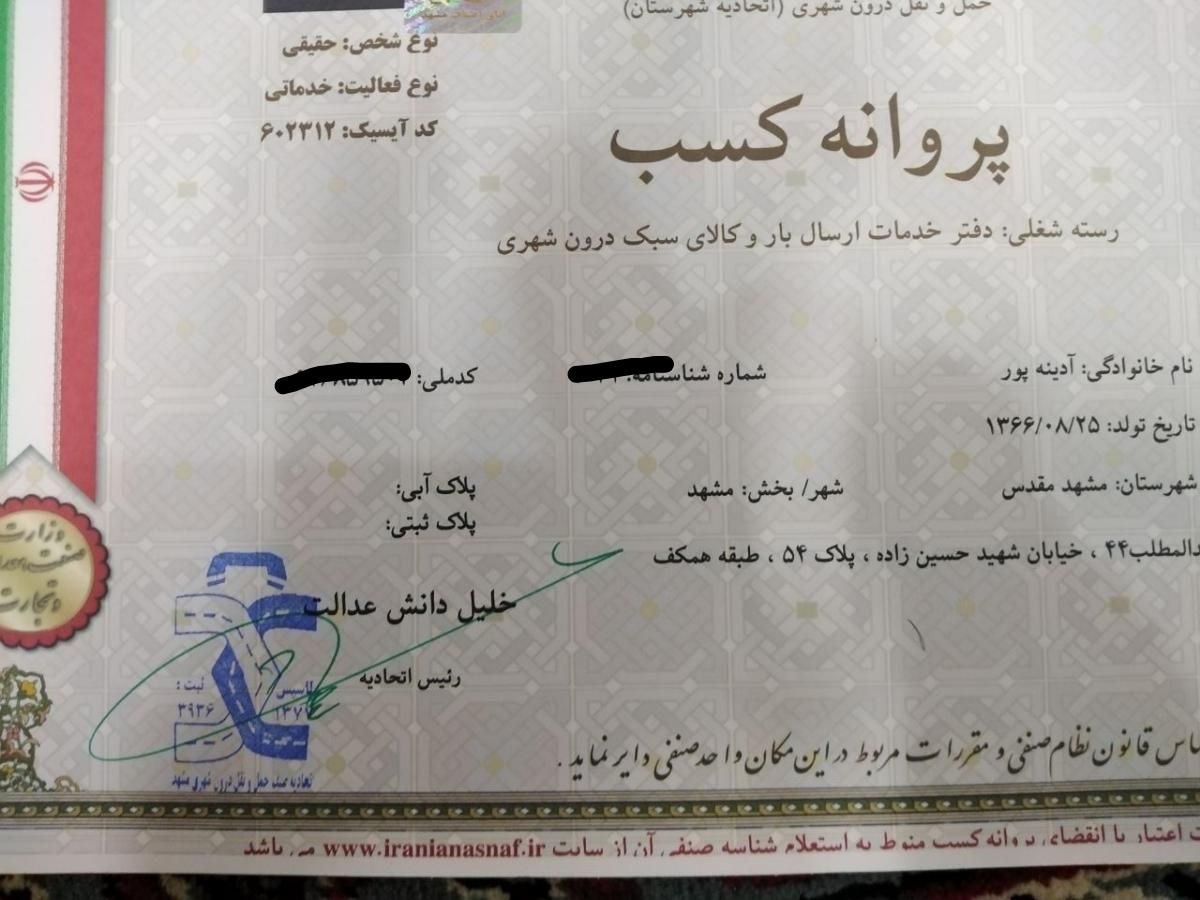 حمل و نقل درون شهری (اتحادیه شهرستان)
نوع شخص: حقیقی
نوع فعالیت: خدماتی
کد آیسیک: ۶۰۲۳۱۲
پروانه کسب
رسته شغلی: دفتر خدمات ارسال بار و کالای سبک درون شهری
نام خانوادگی: آدینه پور
شماره شناسنامه:
کدملی:
تاریخ تولد: ۱۳۶۶/۰۸/۲۵
شهرستان: مشهد مقدس
شهر/ بخش: مشهد
پلاک آبی:
پلاک ثبتی:
دالمطلب۴۴ ، خیابان شهید حسین زاده ، پلاک ۵۴ ، طبقه همکف
وزارت
صنعت، معدن
و تجارت
خلیل دانش عدالت
رئیس اتحادیه
تاسیس
ثبت :
۳۹۳۶
اتحادیه صنف حمل و نقل درون شهری مشهد
اس قانون نظام صنفی و مقررات مربوط در این مکان واحد صنفی دایر نماید .
ت اعتبار یا انقضای پروانه کسب منوط به استعلام شناسه صنفی آن از سایت www.iranianasnaf.ir می باشد